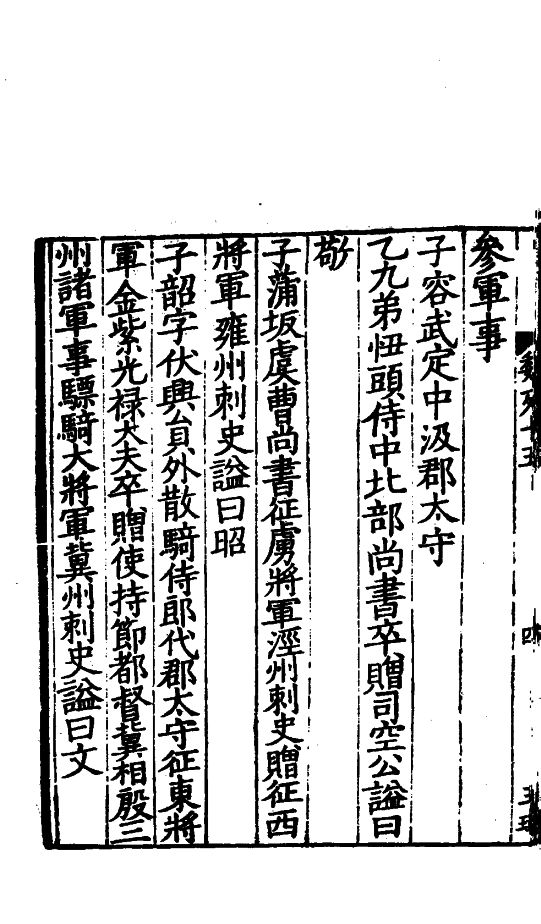 參軍事
子容武定中汲郡太守
乙九弟忸頭侍中北部尚書卒贈司空公謚曰
敬
子蒲坂虞曹尚書征虜將軍涇州刺史贈征西
將軍雍州刺史謚曰昭
子韶字伏興貟外散騎侍郎代郡太守征東將
軍金紫光祿大夫卒贈使持節都督冀相殷三
州諸軍事驃騎大將軍冀州刺史謚曰文